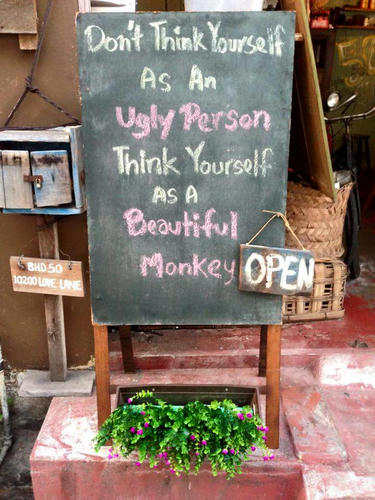 Don't Think Yourself
As An
Ugly Person
Think Yourself
As A
Beautiful
Monkey
OPEN
BHD 50
10200 LOVE LANE